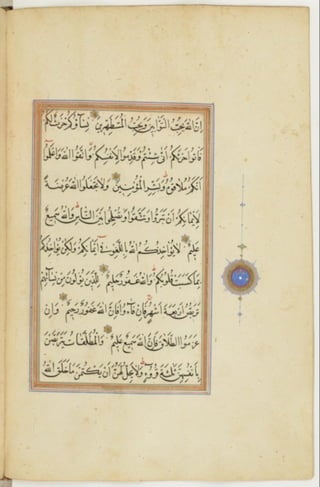 إِنَّ اللَّهَ يُحِبُّ التَّوَّابِينَ وَيُحِبُّ الْمُتَطَهِّرِينَ نِسَاؤُكُمْ حَرْثٌ لَكُمْ
فَأْتُوا حَرْثَكُمْ أَنَّى شِئْتُمْ وَقَدِّمُوا لِأَنْفُسِكُمْ وَاتَّقُوا اللَّهَ وَاعْلَمُوا
أَنَّكُمْ مُلَاقُوهُ وَبَشِّرِ الْمُؤْمِنِينَ وَلَا تَجْعَلُوا اللَّهَ عُرْضَةً
لِأَيْمَانِكُمْ أَنْ تَبَرُّوا وَتَتَّقُوا وَتُصْلِحُوا بَيْنَ النَّاسِ وَاللَّهُ سَمِيعٌ
عَلِيمٌ لَا يُؤَاخِذُكُمُ اللَّهُ بِاللَّغْوِ فِي أَيْمَانِكُمْ وَلَكِنْ يُؤَاخِذُكُمْ
بِمَا كَسَبَتْ قُلُوبُكُمْ وَاللَّهُ غَفُورٌ حَلِيمٌ لِلَّذِينَ يُؤْلُونَ مِنْ نِسَائِهِمْ
تَرَبُّصُ أَرْبَعَةِ أَشْهُرٍ فَإِنْ فَاءُوا فَإِنَّ اللَّهَ غَفُورٌ رَحِيمٌ وَإِنْ
عَزَمُوا الطَّلَاقَ فَإِنَّ اللَّهَ سَمِيعٌ عَلِيمٌ وَالْمُطَلَّقَاتُ يَتَرَبَّصْنَ
بِأَنْفُسِهِنَّ ثَلَاثَةَ قُرُوءٍ وَلَا يَحِلُّ لَهُنَّ أَنْ يَكْتُمْنَ مَا خَلَقَ اللَّهُ